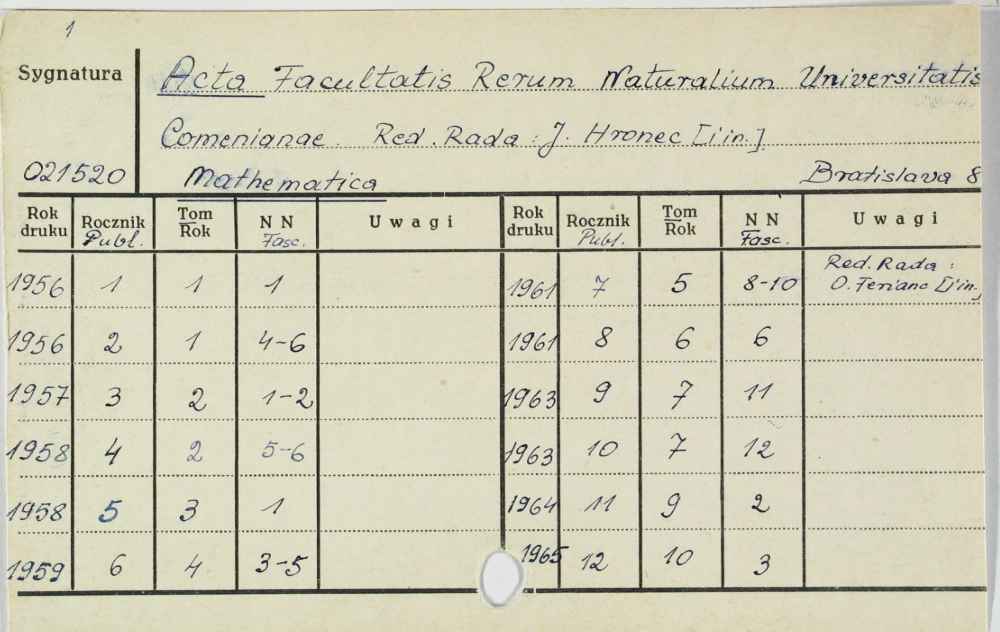 1
Sygnatura
Acta Facultatis Rerum Naturalium Universitatis
Comenianae. Red. Rada: J. Hronec [i in.]
021520 Mathematica Bratislava 8
Rok druku Rocznik Publ. Tom/Rok NN Fasc. Uwagi Rok druku Rocznik Publ. Tom/Rok NN Fasc. Uwagi
1956 1 1 1 1961 7 5 8-10 Red. Rada: O. Feriano [i in.
1956 2 1 4-6 1961 8 6 6
1957 3 2 1-2 1963 9 7 11
1958 4 2 5-6 1963 10 7 12
1958 5 3 1 1964 11 9 2
1959 6 4 3-5 1965 12 10 3